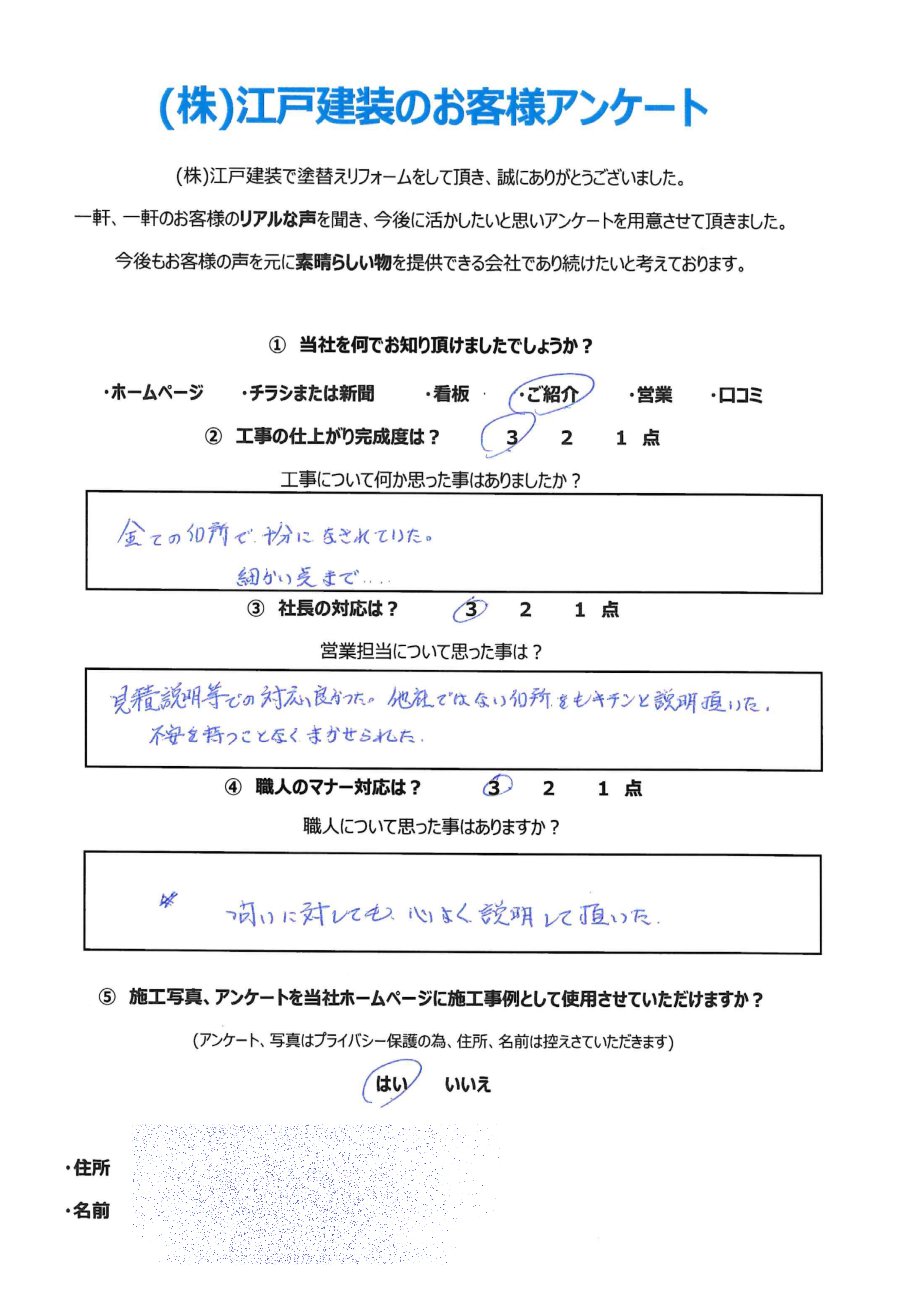 (株)江戸建装のお客様アンケート
(株)江戸建装で塗替えリフォームをして頂き、誠にありがとうございました。
一軒、一軒のお客様のリアルな声を聞き、今後に活かしたいと思いアンケートを用意させて頂きました。
今後もお客様の声を元に素晴らしい物を提供できる会社であり続けたいと考えております。
① 当社を何でお知り頂けましたでしょうか？
・ホームページ ・チラシまたは新聞 ・看板 ・ご紹介 ・営業 ・口コミ
② 工事の仕上がり完成度は？ 3 2 1 点
工事について何か思った事はありましたか？
全ての個所で十分になされていた。
細かい点まで....
③ 社長の対応は？ 3 2 1 点
営業担当について思った事は？
見積説明等での対応良かった。他社ではない個所をもキチンと説明頂いた、
不安を持つことなくまかせられた.
④ 職人のマナー対応は？ 3 2 1 点
職人について思った事はありますか？
問いに対しても、心よく説明して頂いた.
⑤ 施工写真、アンケートを当社ホームページに施工事例として使用させていただけますか？
(アンケート、写真はプライバシー保護の為、住所、名前は控えさていただきます)
はい いいえ
・住所
・名前